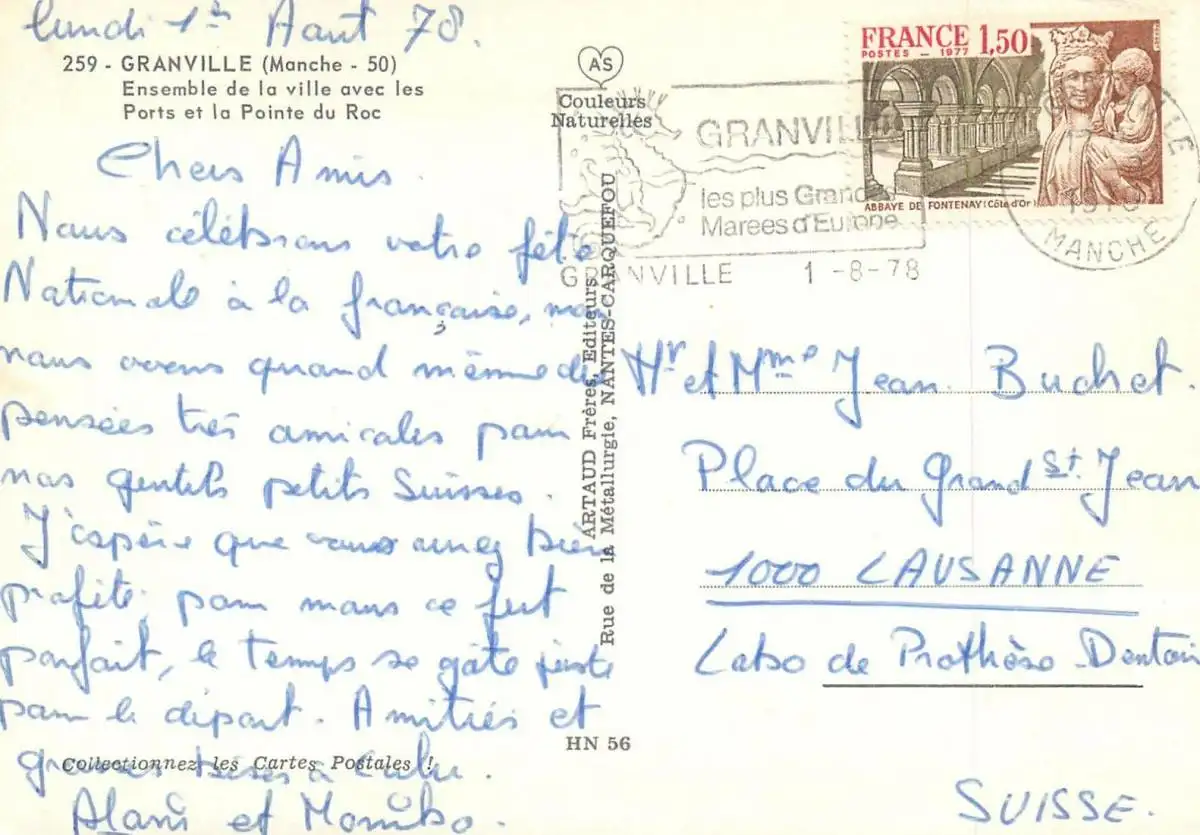 lundi 1er Août 78.
259 - GRANVILLE (Manche - 50)
Ensemble de la ville avec les
Ports et la Pointe du Roc
Chers Amis
Nous célébrons votre fête
Nationale à la française, mais
nous avons quand même des
pensées très amicales pour
nos gentils petits Suisses.
J'espère que vous avez bien
profité, pour nous ce fut
parfait, le temps se gâte juste
pour le départ. Amitiés et
grosses bises à
Collectionnez les Cartes Postales !
Alain et
AS
Couleurs
Naturelles
ARTAUD Frères, Editeurs
Rue de la Métallurgie, NANTES-CARQUEFOU
HN 56
FRANCE 1,50
POSTES - 1977
ABBAYE DE FONTENAY (Côte d'Or)
GRANVILLE
les plus Grandes
Marees d'Europe
GRANVILLE 1 -8-78
MANCHE
Mr et Mme Jean Buchet.
Place du Grand St. Jean
1000 LAUSANNE
Labo de Prothèse Dentair
SUISSE.